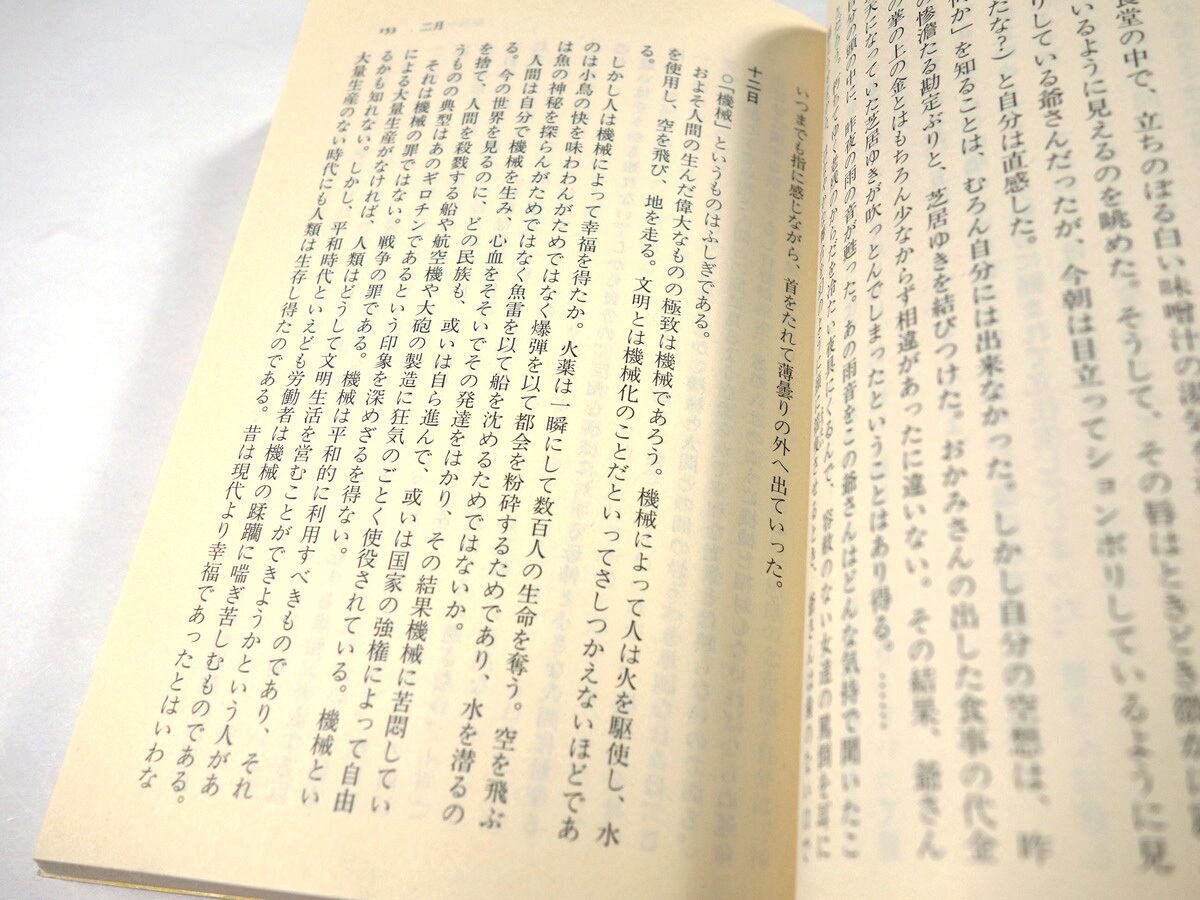 食堂の中で、立ちのぼる白い味噌汁の湯気
いるように見えるのを眺めた。そうして、その唇はときどき
りしている爺さんだったが、今朝は目立ってションボリしているように見
たな？）と自分は直感した。
何か」を知ることは、むろん自分には出来なかった。しかし自分の空想は、昨
の惨澹たる勘定ぶりと、芝居ゆきを結びつけた。おかみさんの出した食事の代金
の掌の上の金とはもちろん少なからず相違があったに違いない。その結果、爺さん
になっていた芝居ゆきが吹っとんでしまったということはあり得る。……
自分の頭の中に、昨夜の雨の音が甦った。あの雨音をこの爺さんはどんな気持で聞いたこ
いつまでも指に感じながら、首をたれて薄曇りの外へ出ていった。
十二日
○「機械」というものはふしぎである。
およそ人間の生んだ偉大なものの極致は機械であろう。機械によって人は火を駆使し、水
を使用し、空を飛び、地を走る。文明とは機械化のことだといってさしつかえないほどであ
る。
しかし人は機械によって幸福を得たか。火薬は一瞬にして数百人の生命を奪う。空を飛ぶ
のは小鳥の快を味わわんがためではなく爆弾を以て都会を粉砕するためであり、水を潜るの
は魚の神秘を探らんがためではなく魚雷を以て船を沈めるためではないか。
人間は自分で機械を生み、心血をそそいでその発達をはかり、その結果機械に苦悶してい
る。今の世界を見るのに、どの民族も、或いは自ら進んで、或いは国家の強権によって自由
を捨て、人間を殺戮する船や航空機や大砲の製造に狂気のごとく使役されている。機械とい
うものの典型はあのギロチンであるという印象を深めざるを得ない。
それは機械の罪ではない。戦争の罪である。機械は平和的に利用すべきものであり、それ
による大量生産がなければ、人類はどうして文明生活を営むことができようかという人があ
るかも知れない。しかし、平和時代といえども労働者は機械の蹂躪に喘ぎ苦しむものである。
大量生産のない時代にも人類は生存し得たのである。昔は現代より幸福であったとはいわな
153 二月